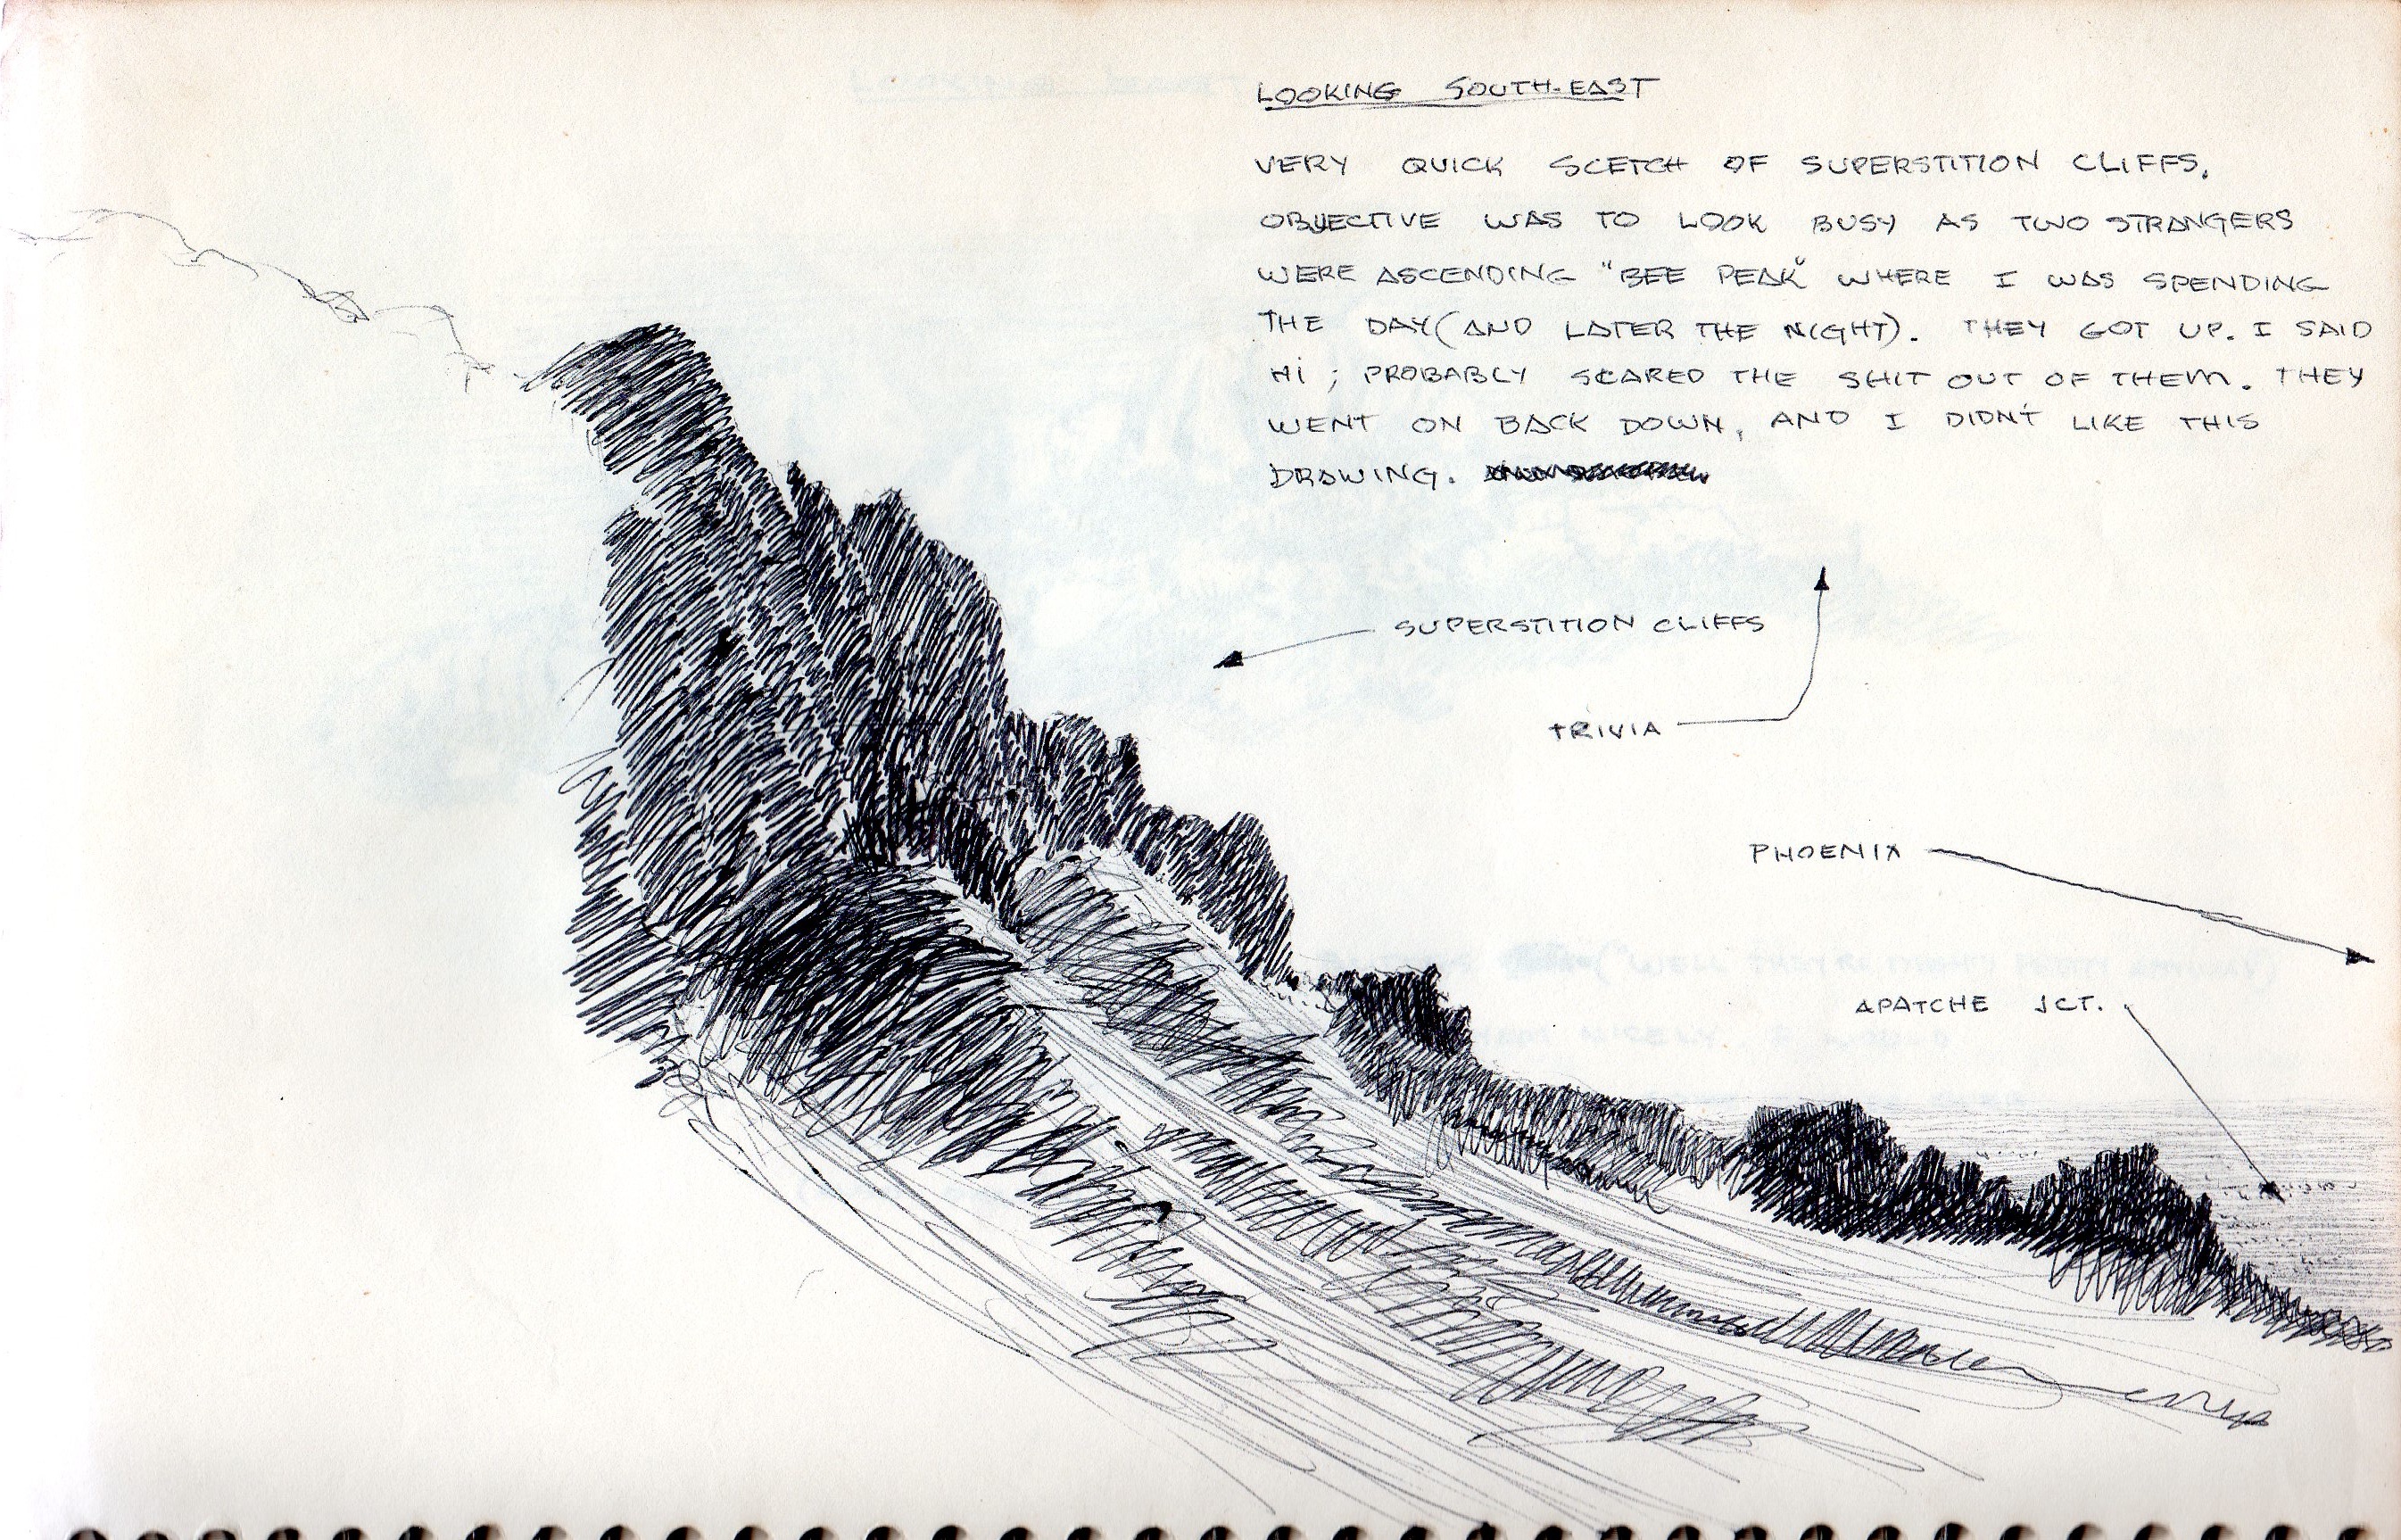 LOOKING SOUTH-EAST
VERY QUICK SCETCH OF SUPERSTITION CLIFFS.
OBJECTIVE WAS TO LOOK BUSY AS TWO STRANGERS
WERE ASCENDING "BEE PEAK" WHERE I WAS SPENDING
THE DAY (AND LATER THE NIGHT). THEY GOT UP. I SAID
HI ; PROBABLY SCARED THE SHIT OUT OF THEM. THEY
WENT ON BACK DOWN, AND I DIDN'T LIKE THIS
DRAWING.
SUPERSTITION CLIFFS
TRIVIA
PHOENIX
APATCHE JCT.